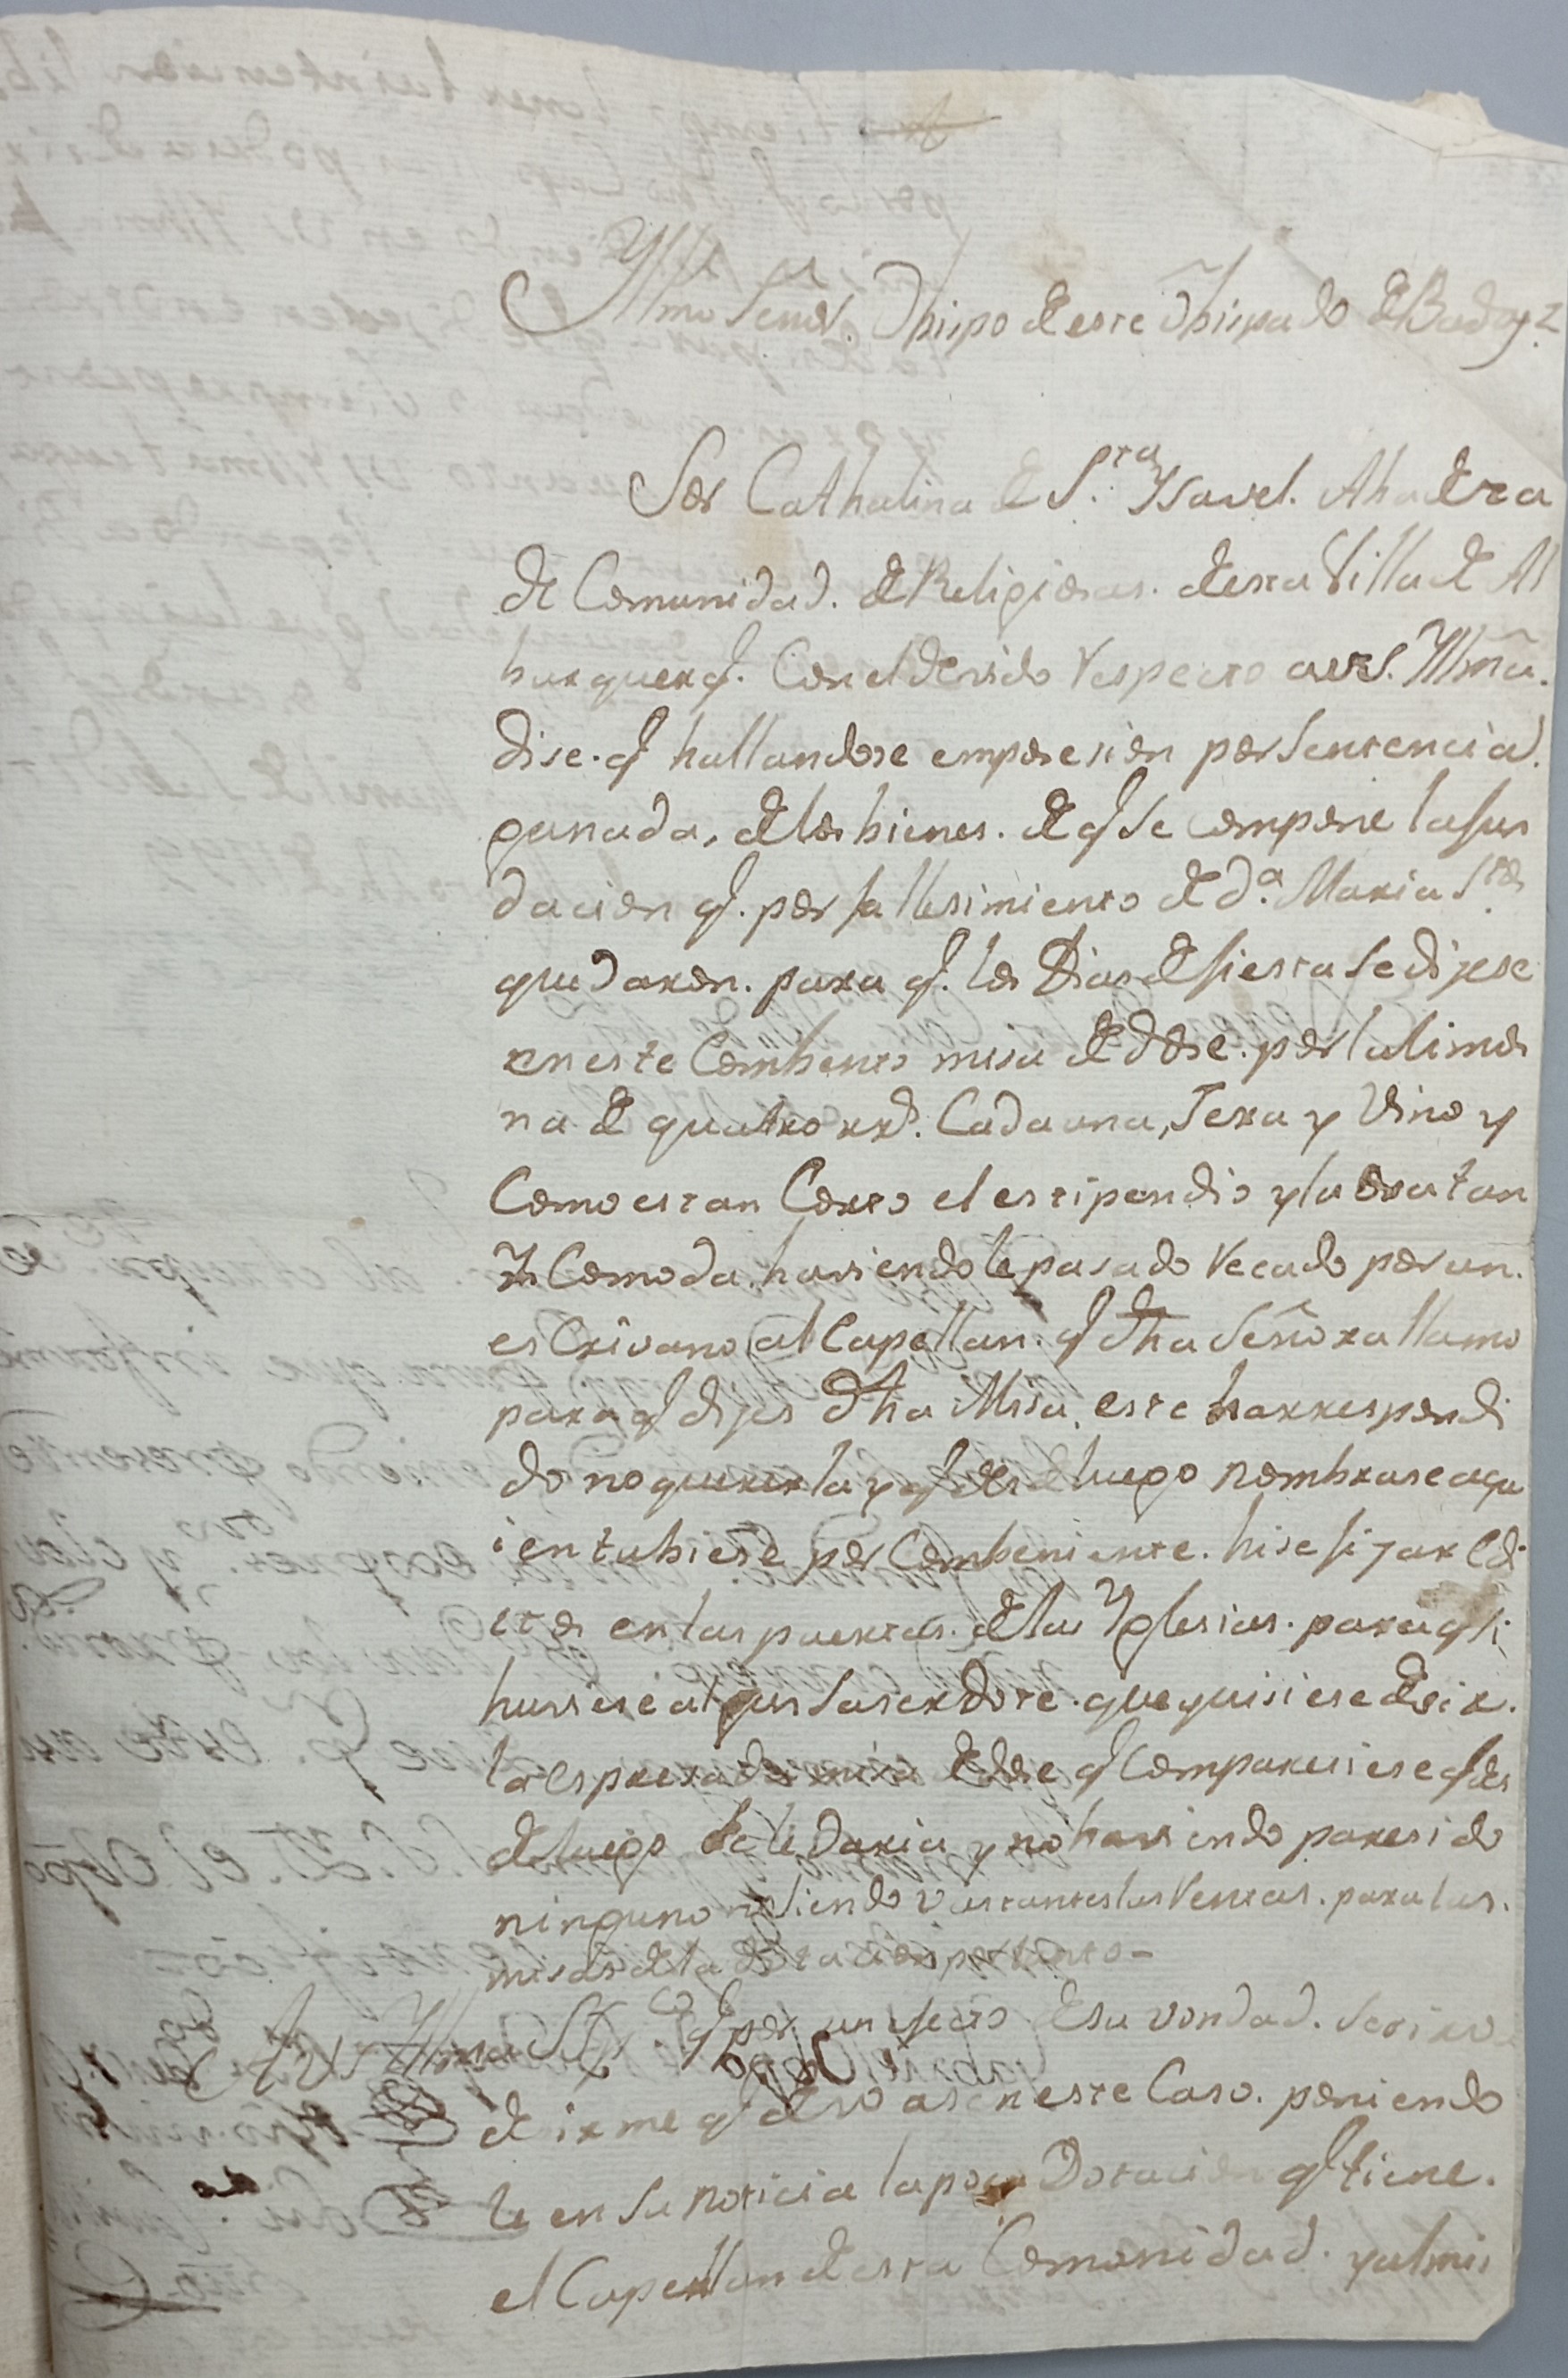 Yllmo Señor. Obispo de este Obispado de Badajz.
Sor Cathalina de Sta. Ysavel. Abadeza
de Comunidad. de Religiosas. de esta Villa de Al
burquerq. Con el devido Respecto a V.S. Yllma.
dise. q hallandose em posesion por Sentencia
ganada, de los bienes. de q se compone la fun
dacion q. por fallesimiento de da. Maria Stos
quedaron. para q. los Dias de fiesta se dijese
en este Combento misa de dose. por la limos
na de quatro rrs. Cada una, Sera y Vino y
Como es tan Corto el estipendio y la ora tan
Yncomoda, haviendole pasado Recado por un.
esCrivano al Capellan. q dha Señora llamo
para q dijes dha Misa, este ha rrespondi
do no quererla y q desde luego nombrase aqu
ien tubiese por Combeniente. hise fijar Edi
ctos en las puertas. de las Yglesias. para q si
huviese algun Saserdote. que quisiese desir.
la espresada misa de dose q Compareciese q des
de luego se le daria y no haviendo paresido
ninguno no siendo vastantes las Rentas. para las.
misas de la dotacion por tanto-
A V.S. Yllma Suppco q por un efecto de su vondad. se sirva
desirme q devo aser en este Caso. poniendo
le en su noticia la poca Dotacion q tiene.
el Capellan de esta Comunidad. y al mis